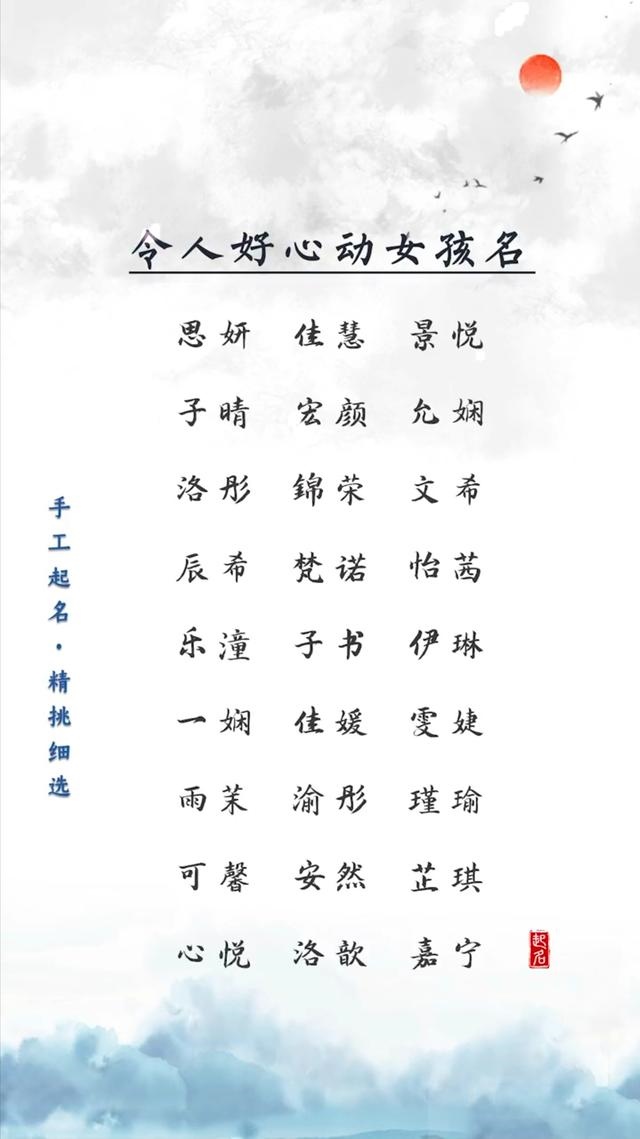 令人好心动女孩名
思妍 佳慧 景悦
子晴 宏颜 允娴
洛彤 錦荣 文希
辰希 梵诺 怡茜
乐潼 子书 伊琳
一娴 佳媛 雯婕
雨茉 渝彤 瑾瑜
可馨 安然 芷琪
心悦 洛歆 嘉宁
手工起名·精挑细选
起名